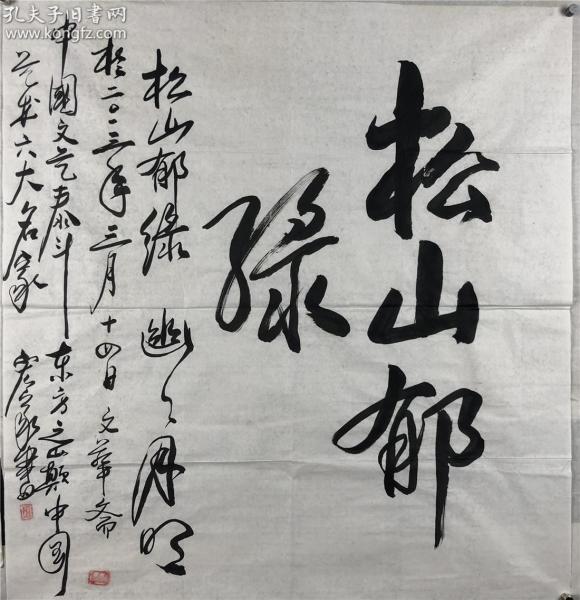 孔夫子旧书网
www.kongfz.com
松山郁
绿
松山郁绿 幽幽月明
於二〇一三年三月十四日 文华斋
中国文艺泰斗 东方之巅 中国
艺术六大名家